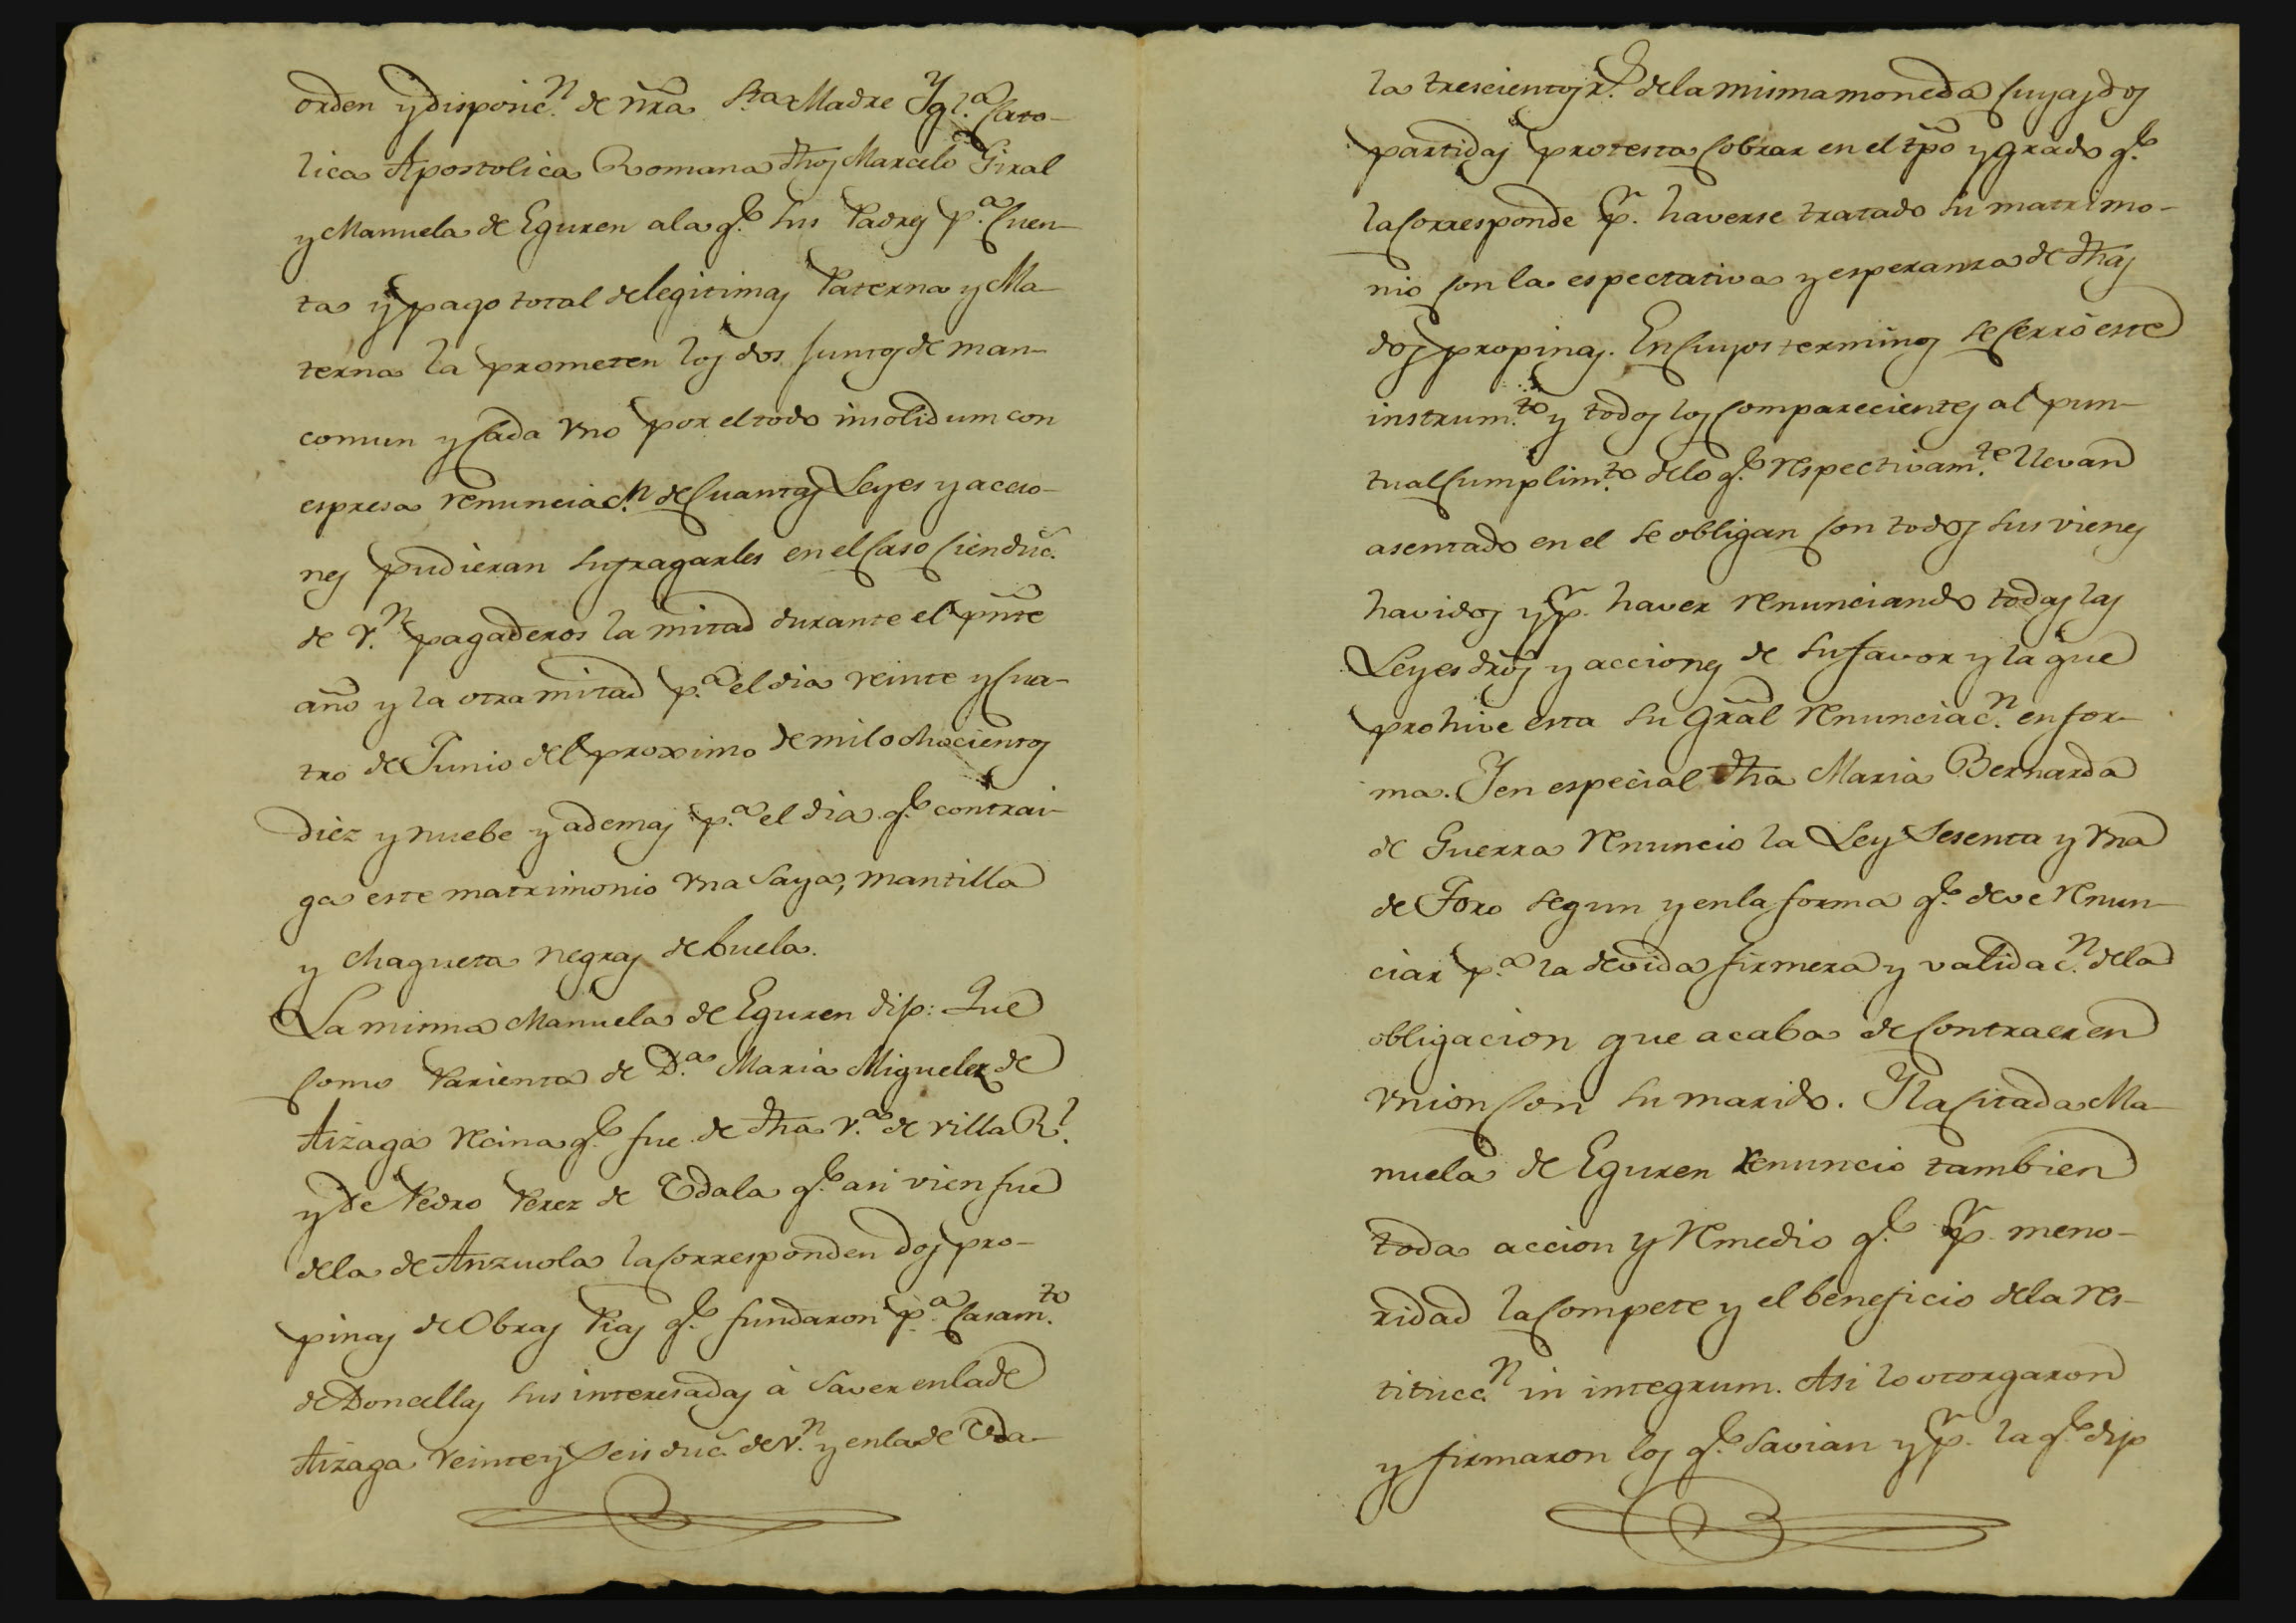 orden y disposic.n de nra Sta Madre Ygl.a Cato-
lica Apostolica Romana dhos Marcelo Giral
y Manuela de Eguren a la q.e sus Padres p.a Cuen-
ta y pago total de legitimas Paterna y Ma-
terna la prometen los dos juntos de man-
comun y Cada Vno por el todo insolidum con
espresa renunciac.n de Cuantas Leyes y accio-
nes pudieran sufragarles en el Caso Cien duc.
de V.n pagaderos la mitad durante el pnte
año y la otra mitad p.a el dia veinte y Cua-
tro de Junio del proximo de mil ochocientos
diez y nuebe y ademas p.a el dia q.e contrai-
ga este matrimonio Vna Saya, mantilla
y chaqueta negras de buela.
La misma Manuela de Eguren dijo: Que
Como Parienta de D.a Maria Miguelez de
Aizaga Vecina q.e fue de dha V.a de villa R.l
y de Pedro Perez de Vdala q.e asi vien fue
de la de Anzuola la Corresponden dos pro-
pinas de Obras Pias q.e fundaron p.a Casam.to
de Doncellas sus interesadas à Saver en la de
Aizaga Veinte y Seis duc. de V.n y en la de Vda-
la trescientos r.s de la misma moneda Cuyas dos
partidas protesta Cobrar en el tpo y grado q.e
la Corresponde p.r haverse tratado su matrimo-
nio Con la espectativa y esperanza de dhas
dos propinas. En Cuyos terminos se Cerró este
instrum.to y todos los Comparecientes al pun-
tual Cumplim.to de lo q.e respectivam.te llevan
asentado en el se obligan Con todos sus vienes
havidos y p.r haver renunciando todas las
Leyes dros y acciones de su favor y la que
prohive esta su Gral renunciac.n en for-
ma. Y en especial dha Maria Bernarda
de Guerra renuncio la Ley Sesenta y Vna
de Toro segun y en la forma q.e deve renun-
ciar p.a la devida firmeza y validac.n de la
obligacion que acaba de Contraer en
Vnion Con su marido. Y la Citada Ma-
nuela de Eguren renuncio tambien
toda accion y remedio q.e p.r meno-
ridad la Compete y el beneficio de la res-
titucc.n in integrum. Asi lo otorgaron
y firmaron los q.e Savian y p.r la q.e dijo